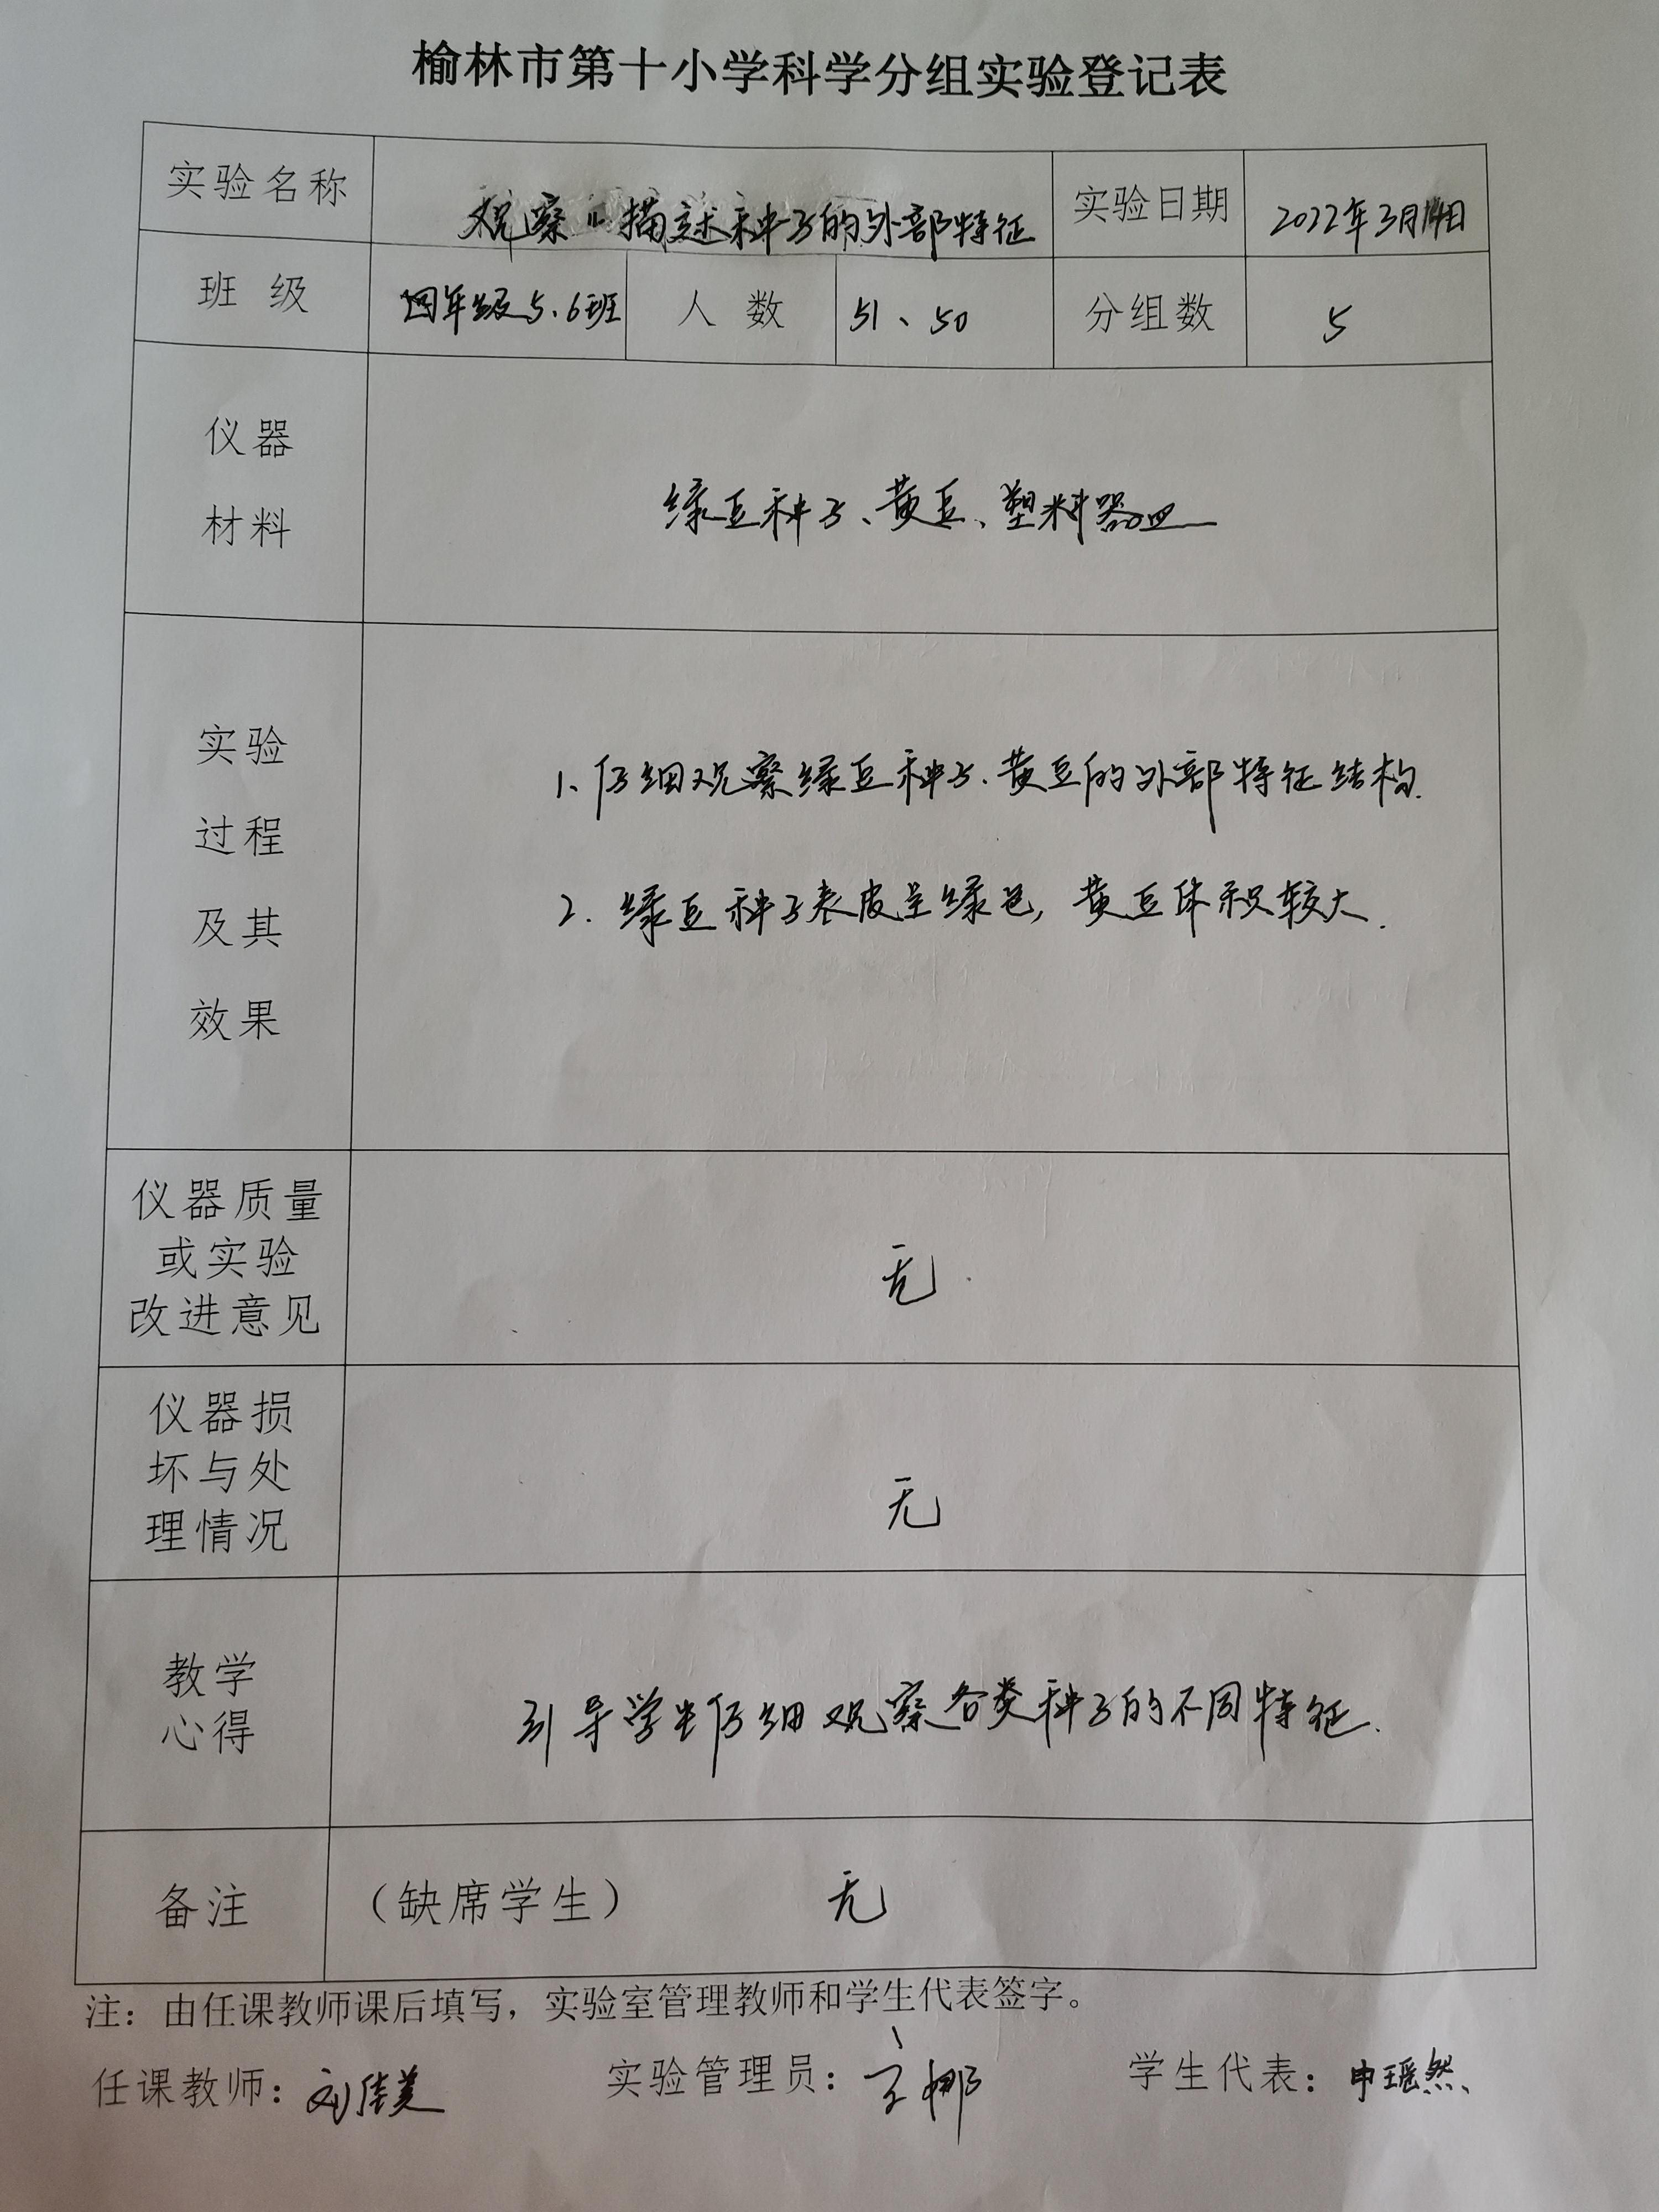 榆林市第十小学科学分组实验登记表
实验名称 观察、描述种子的外部特征 实验日期 2022年3月14日
班 级 四年级5、6班 人 数 51、50 分组数 5
仪器
材料
绿豆种子、黄豆、塑料器皿
实验
过程
及其
效果
1、仔细观察绿豆种子、黄豆的外部特征结构.
2. 绿豆种子表皮呈绿色, 黄豆体积较大.
仪器质量
或实验
改进意见
无.
仪器损
坏与处
理情况
无
教学
心得
引导学生仔细观察各类种子的不同特征.
备注 （缺席学生） 无
注：由任课教师课后填写，实验室管理教师和学生代表签字。
任课教师：刘佳美 实验管理员： 学生代表：申瑶然